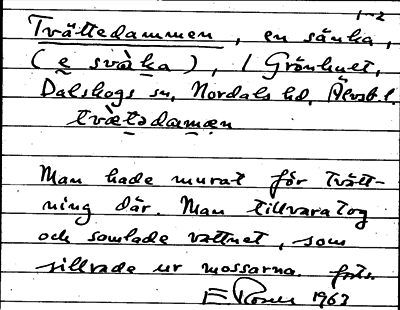 1-2
Tvättedammen, en sänka,
(e svàka), i Grönhult,
Dalskogs sn, Nordals hd, Älvsb. l.
tvætədamæn
Man hade murat för tvätt-
ning där. Man tillvaratog
och samlade vattnet, som
sillrade ur mossarna. forts.
1963